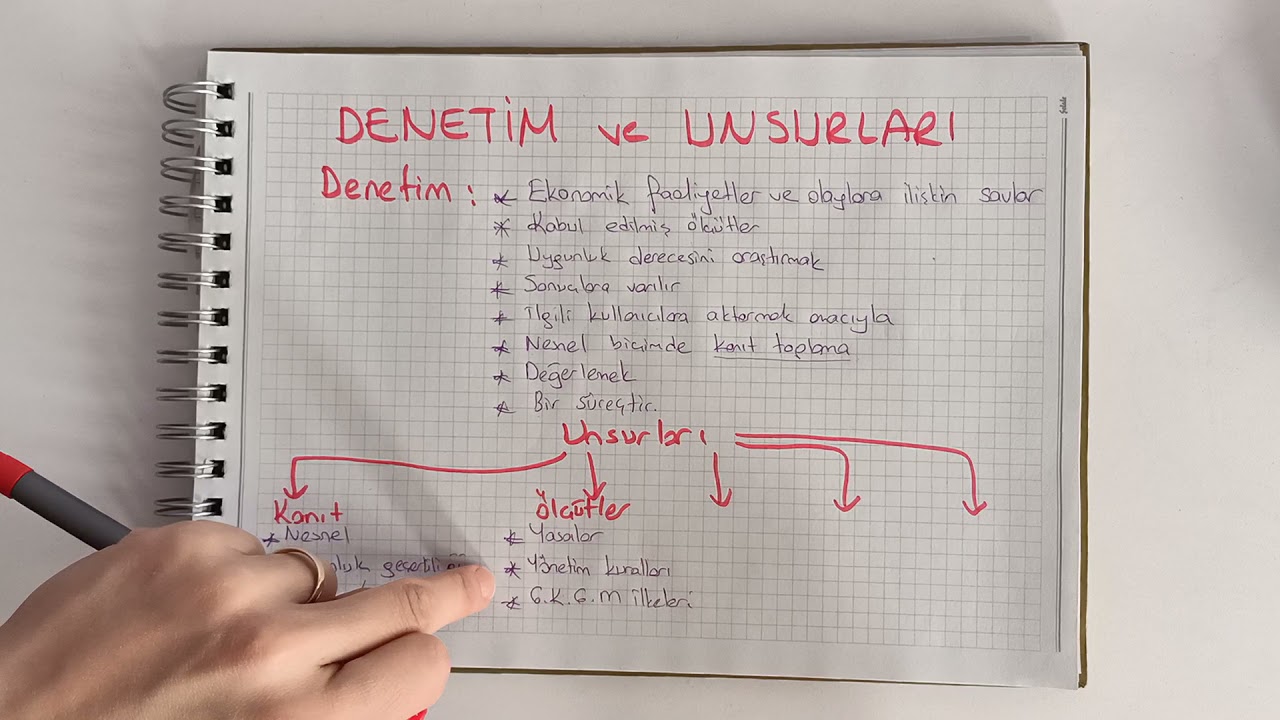 DENETİM ve UNSURLARI
Denetim : * Ekonomik faaliyetler ve olaylara ilişkin savlar
* Kabul edilmiş ölçütler
* Uygunluk derecesini araştırmak
* Sonuçlara varılır
* İlgili kullanıcılara aktarmak amacıyla
* Nesnel biçimde kanıt toplama
* Değerlemek
* Bir süreçtir.
Unsurları
Kanıt
* Nesnel
Ölçütler
* Yasalar
* Yönetim kuralları
* G.K.G.M ilkeleri